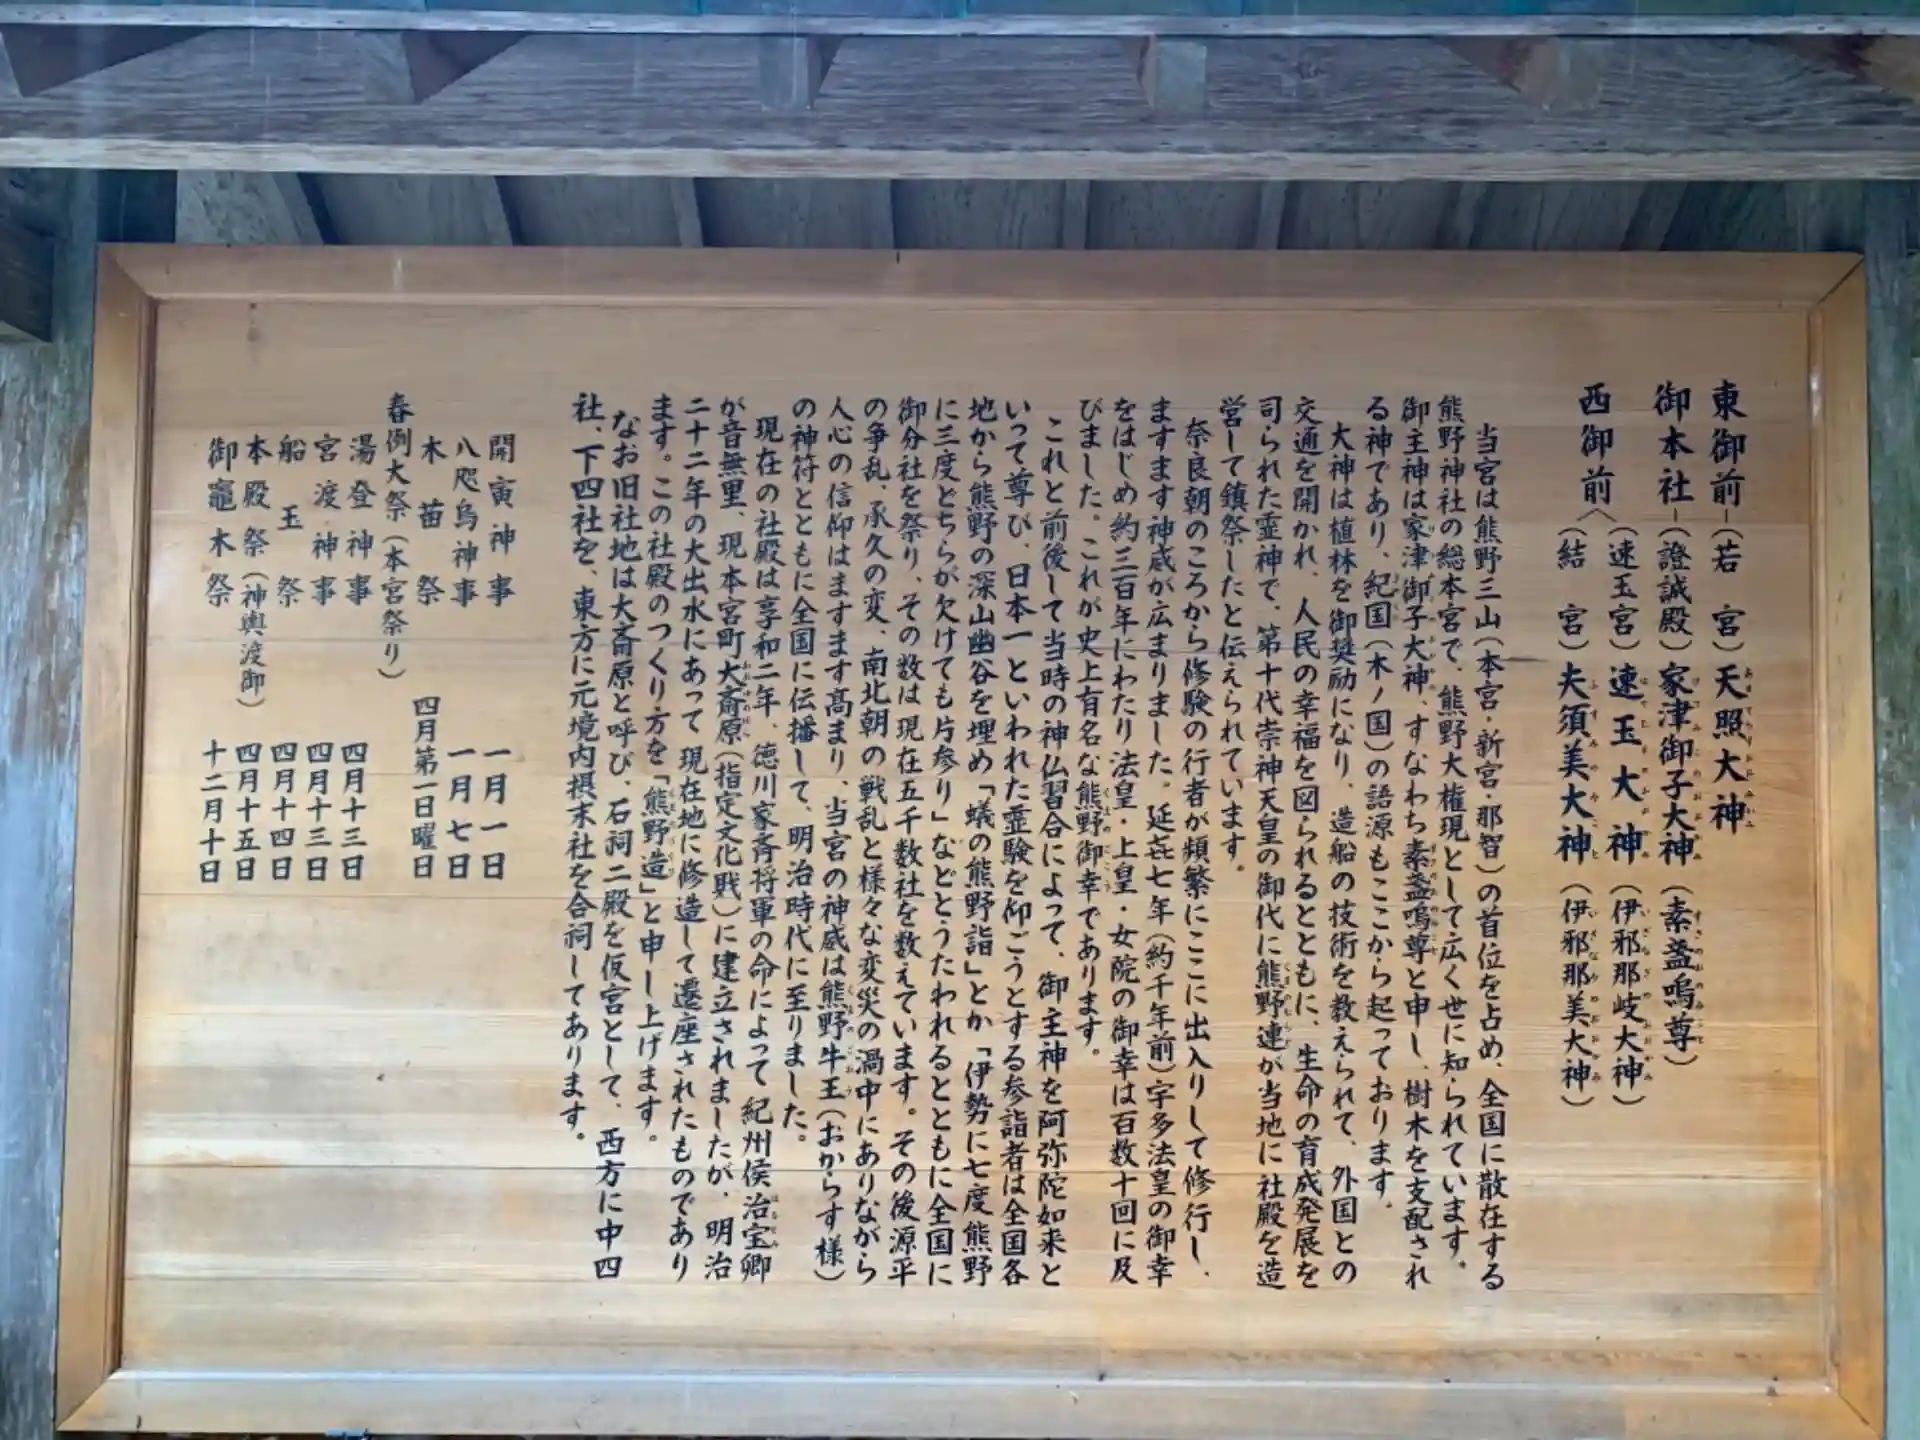 東御前―(若　宮)天照大神
御本社―(證誠殿)家津御子大神(素盞嗚尊)
(速玉宮)速玉大神(伊邪那岐大神)
西御前
(結　宮)夫須美大神(伊邪那美大神)
当宮は熊野三山(本宮・新宮・那智)の首位を占め、全国に散在する
熊野神社の総本宮で、熊野大権現として広く世に知られています。
御主神は家津御子大神、すなわち素盞嗚尊と申し、樹木を支配され
る神であり、紀国(木ノ国)の語源もここから起っております。
大神は植林を御奨励になり、造船の技術を教えられて、外国との
交通を開かれ、人民の幸福を図られるとともに、生命の育成発展を
司られた霊神で、第十代崇神天皇の御代に熊野連が当地に社殿を造
営して鎮祭したと伝えられています。
奈良朝のころから修験の行者が頻繁にここに出入りして修行し、
ますます神威が広まりました。延㐂七年(約千年前)宇多法皇の御幸
をはじめ約三百年にわたり法皇・上皇・女院の御幸は百数十回に及
びました。これが史上有名な熊野御幸であります。
これと前後して当時の神仏習合によって、御主神を阿弥陀如来と
いって尊び、日本一といわれた霊験を仰ごうとする参詣者は全国各
地から熊野の深山幽谷を埋め「蟻の熊野詣」とか「伊勢に七度熊野
に三度どちらが欠けても片参り」などとうたわれるとともに全国に
御分社を祭り、その数は現在五千数社を数えています。その後源平
の争乱、承久の変、南北朝の戦乱と様々な変災の渦中にありながら
人心の信仰はますます髙まり、当宮の神威は熊野牛王(おからす様)
の神符とともに全国に伝播して、明治時代に至りました。
現在の社殿は享和二年、徳川家斉将軍の命によって紀州侯治宝卿
が音無里、現本宮町大斎原(指定文化財)に建立されましたが、明治
二十二年の大出水にあって現在地に修造して遷座されたものであり
ます。この社殿のつくり方を「熊野造」と申し上げます。
なお旧社地は大斎原と呼び、石祠二殿を仮宮として、西方に中四
社、下四社を、東方に元境内摂末社を合祠してあります。
開寅神事　一月一日
八咫烏神事　一月七日
木苗祭　四月第一日曜日
春例大祭(本宮祭り)
湯登神事　四月十三日
宮渡神事　四月十三日
船玉祭　四月十四日
本殿祭(神輿渡御)　四月十五日
御竈木祭　十二月十日